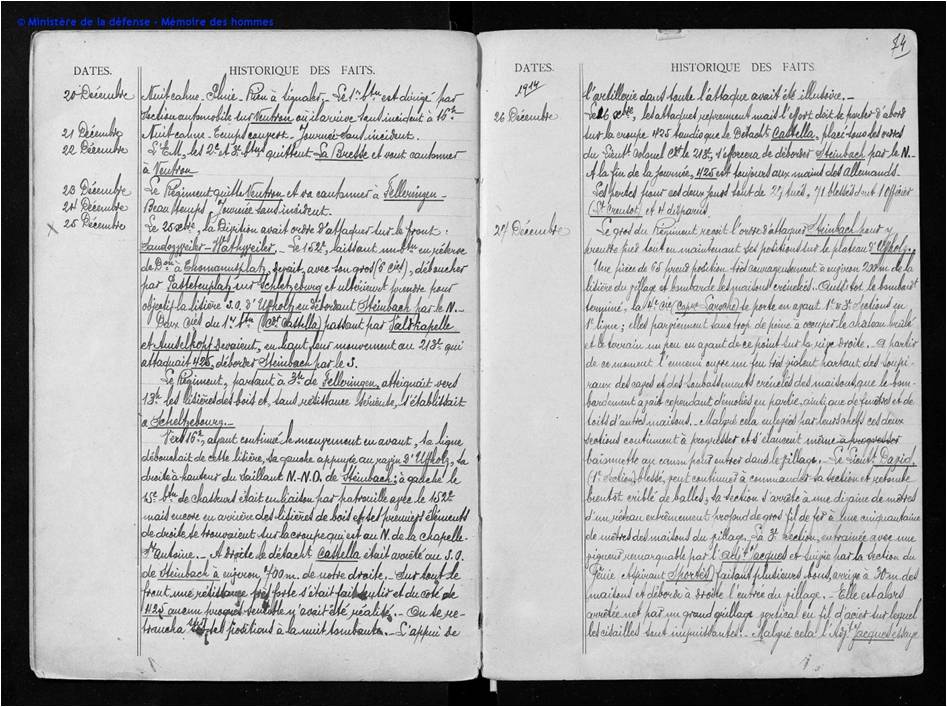 © Ministère de la défense - Mémoire des hommes
DATES. HISTORIQUE DES FAITS.
20 Décembre Nuit calme. Pluie. Rien à signaler. Le 1er Btn est dirigé par
section automobile sur Ventron où il arrive sans incident à 16h
21 Décembre Nuit calme. Temps couvert. Journée sans incident.
22 Décembre L'E.M., les 2e et 3e Btns quittent La Bresse et vont cantonner
à Ventron
23 Décembre Le Régiment quitte Ventron et va cantonner à Felleringen.
24 Décembre Beau temps. Journée sans incident.
X 25 Décembre Le 25 Xbre, la Division avait ordre d'attaquer sur le front:
Le 152e, laissant un Btn en réserve
de Don à Thomannsplatz, devait, avec son gros (6 cies), déboucher
par Pastetenplatz sur et ultérieurt prendre pour
objectif la lisière S.O. d'Uffholz en débordant Steinbach par le N.
Deux cies du 1er Btn (Cdt Castella) passant par Waldkapelle
et Amselkopf devaient, en liant leur mouvement au 213e qui
attaquait 425, déborder Steinbach par le S.
Le Régiment, partant à 3h de Felleringen, atteignait vers
13h les lisières des bois et, sans résistance sérieuse, s'établissait
à
Vers 16h, ayant continué le mouvement en avant, la ligne
débouchait de cette lisière, la gauche appuyée au ravin d'Uffholz, la
droite à hauteur du saillant N.-N.O. de Steinbach; à gauche le
15e Btn de chasseurs était en liaison par patrouille avec le 152e
mais encore en arrière des lisières de bois et ses premiers éléments
de droite se trouvaient sur la croupe qui est au N. de la Chapelle
St Antoine. - A droite le détacht Castella était arrêté au S.O.
de Steinbach à environ 700 m. de notre droite. Sur tout le
front une résistance très forte s'était fait sentir et du côté de
425 aucun progrès sensible n'avait été réalisé. - On se re-
trancha sur les positions à la nuit tombante. - L'appui de
74
DATES. HISTORIQUE DES FAITS.
1914
l'artillerie dans toute l'attaque avait été illusoire. -
26 Décembre Le 26 Xbre, les attaques reprennent mais l'effort doit se porter d'abord
sur la croupe 425 tandis que le Détacht Castella, placé sous les ordres
du Lieutt Colonel Ct le 213e, s'efforcera de déborder Steinbach par le N.
A la fin de la journée, 425 est toujours aux mains des allemands.
Les pertes pour ces deux jours sont de 27 tués, 71 blessés dont 1 Officier
et 4 disparus.
27 Décembre Le gros du Régiment reçoit l'ordre d'attaquer Steinbach pour y
prendre pied tout en maintenant ses positions sur le plateau d'Uffholz.
Une pièce de 65 prend position très courageusement à environ 200m de la
lisière du village et bombarde les maisons crénelées. Aussitôt le bombardt
terminé, la cie (Capne Laroche) se porte en avant, 1re & 3e sections en
1re ligne; elles parviennent sans trop de peine à occuper le château brûlé
et le terrain un peu en avant de ce point sur la rive droite. A partir
de ce moment l'ennemi ouvre un feu très violent partant des soupi-
raux des caves et des soubassements crénelés des maisons que le bom-
bardement avait cependant démolies en partie, ainsi que de fenêtres et de
toits d'autres maisons. - Malgré cela enlevées par leurs chefs ces deux
sections continuent à progresser et s'élancent même à progresser
baïonnette au canon pour entrer dans le village. - Le Lieut. David,
(1re section) blessé, peut continuer à commander sa section et retombe
bientôt criblé de balles; la section s'arrête à une dizaine de mètres
d'un réseau extrêmement profond de gros fil de fer à une cinquantaine
de mètres des maisons du village. La 3e section, entraînée avec une
vigueur remarquable par l'adjt Jacques et suivie par la section du
Génie (Aspirant Sportès) faisant plusieurs bonds, arrive à 30m des
maisons et déborde à droite l'entrée du village. - Elle est alors
arrêtée net par un grand grillage vertical en fil d'acier sur lequel
les cisailles sont impuissantes. - Malgré cela l'Adjt Jacques essaye